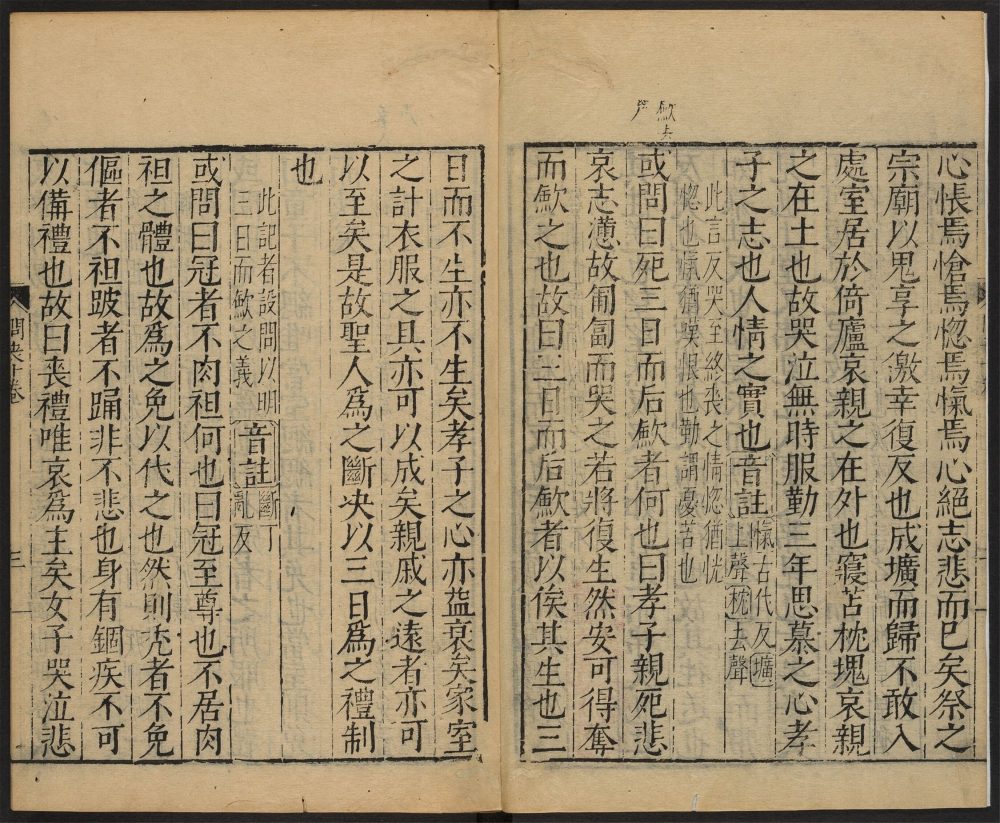 心悵焉愴焉惚焉愾焉心絕志悲而已矣祭之
宗廟以鬼享之激幸復反也成壙而歸不敢入
處室居於倚廬哀親之在外也寢苫枕塊哀親
之在土也故哭泣無時服勤三年思慕之心孝
子之志也人情之實也音註愾古代反壙
上聲枕去聲
此言反哭至終喪之情惚猶恍
惚也愾猶嘆恨也勤謂憂苦也
或問曰死三日而后歛者何也曰孝子親死悲
哀志懣故匍匐而哭之若將復生然安可得奪
而歛之也故曰三日而后歛者以俟其生也三
日而不生亦不生矣孝子之心亦益哀矣家室
之計衣服之具亦可以成矣親戚之遠者亦可
以至矣是故聖人爲之斷决以三日爲之禮制
也
此記者設問以明
三日而歛之義音註斷丁
亂反
或問曰冠者不肉袒何也曰冠至尊也不居肉
袒之體也故爲之免以代之也然則禿者不免
傴者不袒跛者不踊非不悲也身有錮疾不可
以備禮也故曰喪禮唯哀爲主矣女子哭泣悲
問喪十卷
三